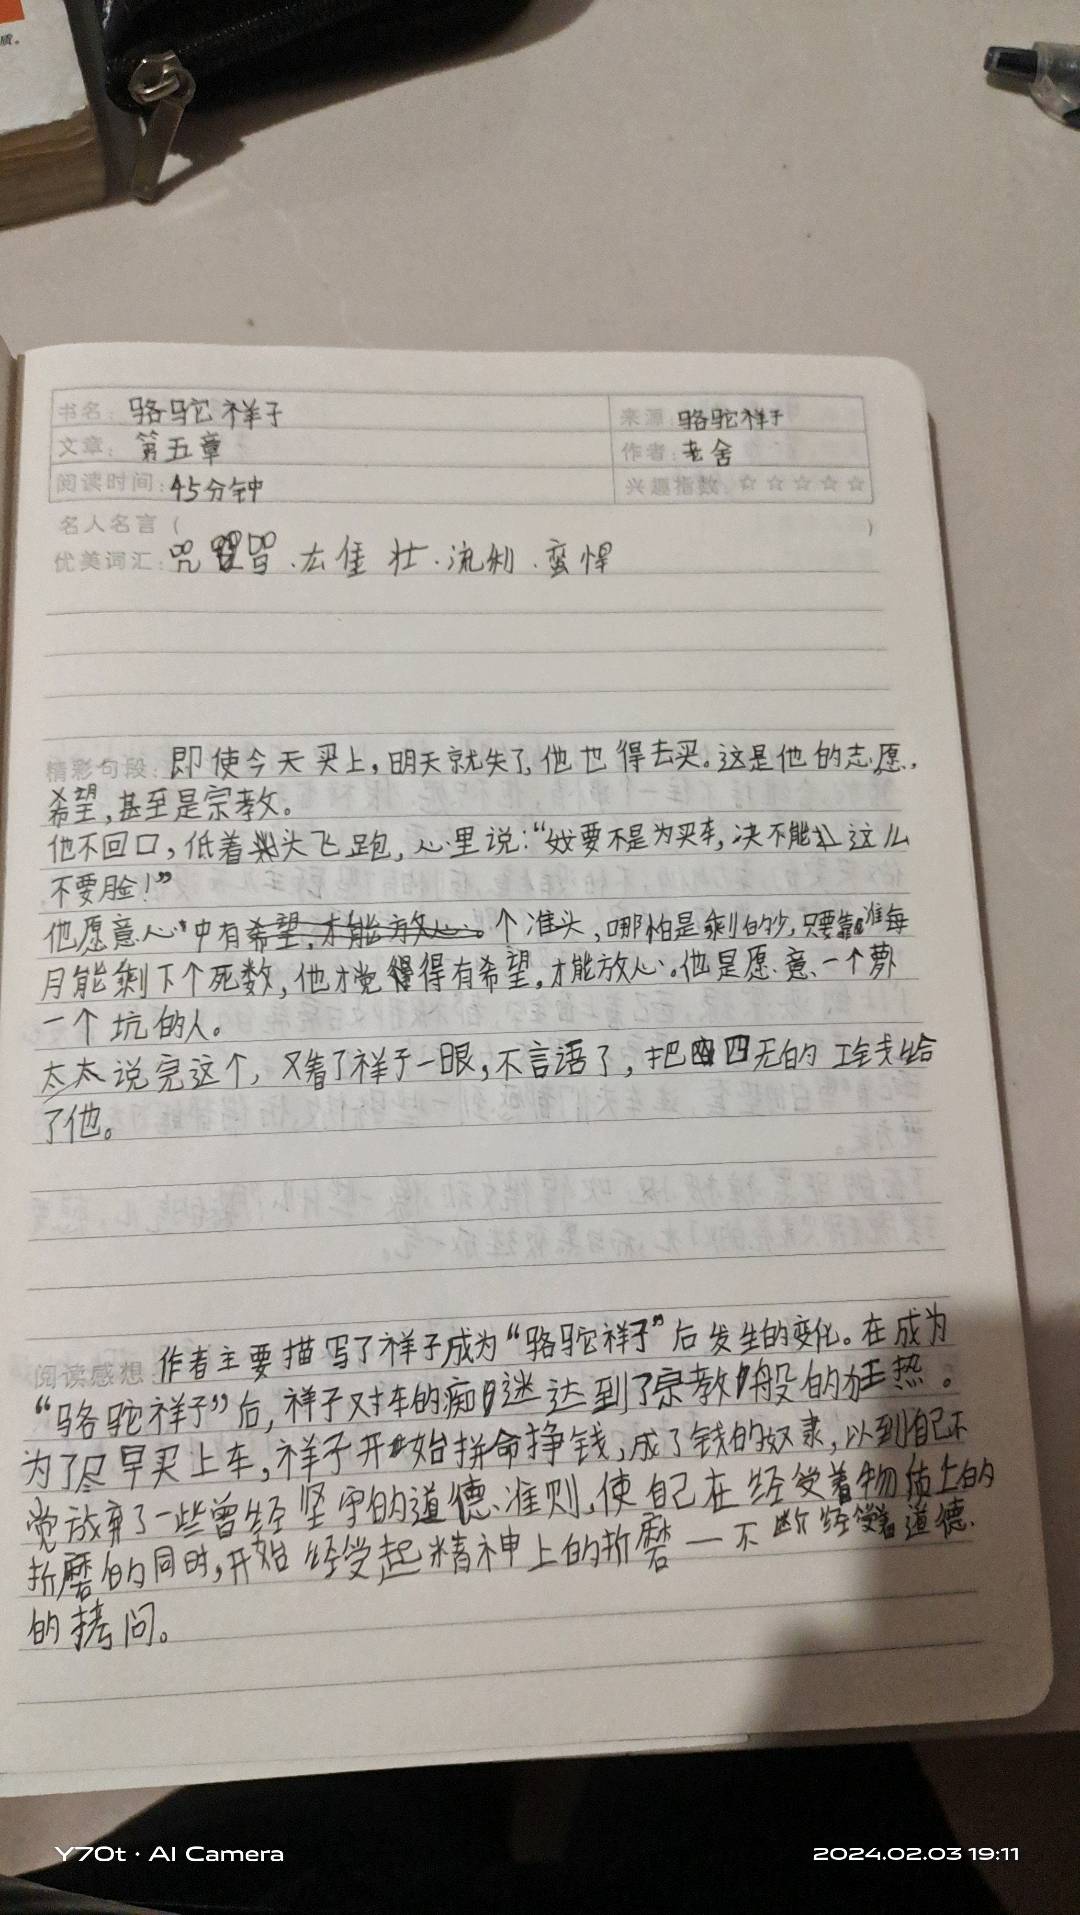 质。
书名：骆驼祥子
来源：骆驼祥子
文章：第五章
作者：老舍
阅读时间：45分钟
兴趣指数：☆☆☆☆☆
名人名言（ ）
优美词汇：咒 詈 壮·流利·蛮悍
精彩句段：即使今天买上，明天就失了，他也得去买。这是他的志愿，
希望，甚至是宗教。
他不回口，低着头飞跑，心里说：“要不是为买车，决不能这么
不要脸！”
他愿意心中有希望，才能放心。个准头，哪怕是剩的少，只要靠准每
月能剩下个死数，他才觉得有希望，才能放心。他是愿意一个萝
一个坑的人。
太太说完这个，又看了祥子一眼，不言语了，把四天的工钱给
了他。
阅读感想：作者主要描写了祥子成为“骆驼祥子”后发生的变化。在成为
“骆驼祥子”后，祥子对车的痴迷达到了宗教般的狂热。
为了尽早买上车，祥子开始拼命挣钱，成了钱的奴隶，以到自己不
觉放弃了一些曾经坚守的道德、准则，使自己在经受着物质上的
折磨的同时，开始经受起精神上的折磨一不断经受着道德
的拷问。
Y70t · AI Camera
2024.02.03 19:11